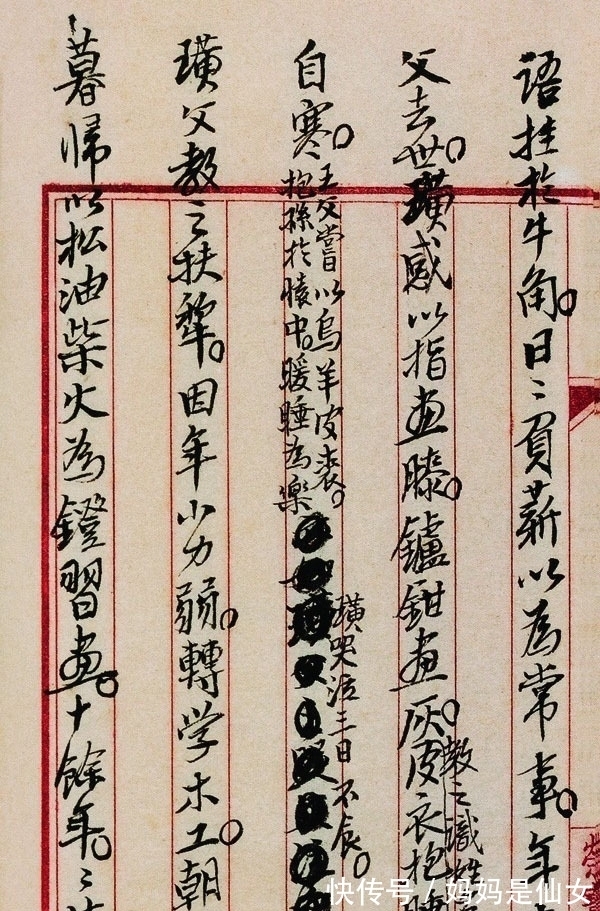 语挂於牛角。日〻負薪以為常事。年
父去世。璜感以指画膝。鑪鉗画灰。皮衣抱
教之識姓
自寒。
王父嘗以烏羊皮裘。
抱孫於懐中。暖睡為樂
璜哭泣三日不食。
璜父教之扶犂。因年小力弱。轉学木工。朝
暮帰以松油柴火為鐙習画。十餘年。〻
快传号／妈妈是仙女